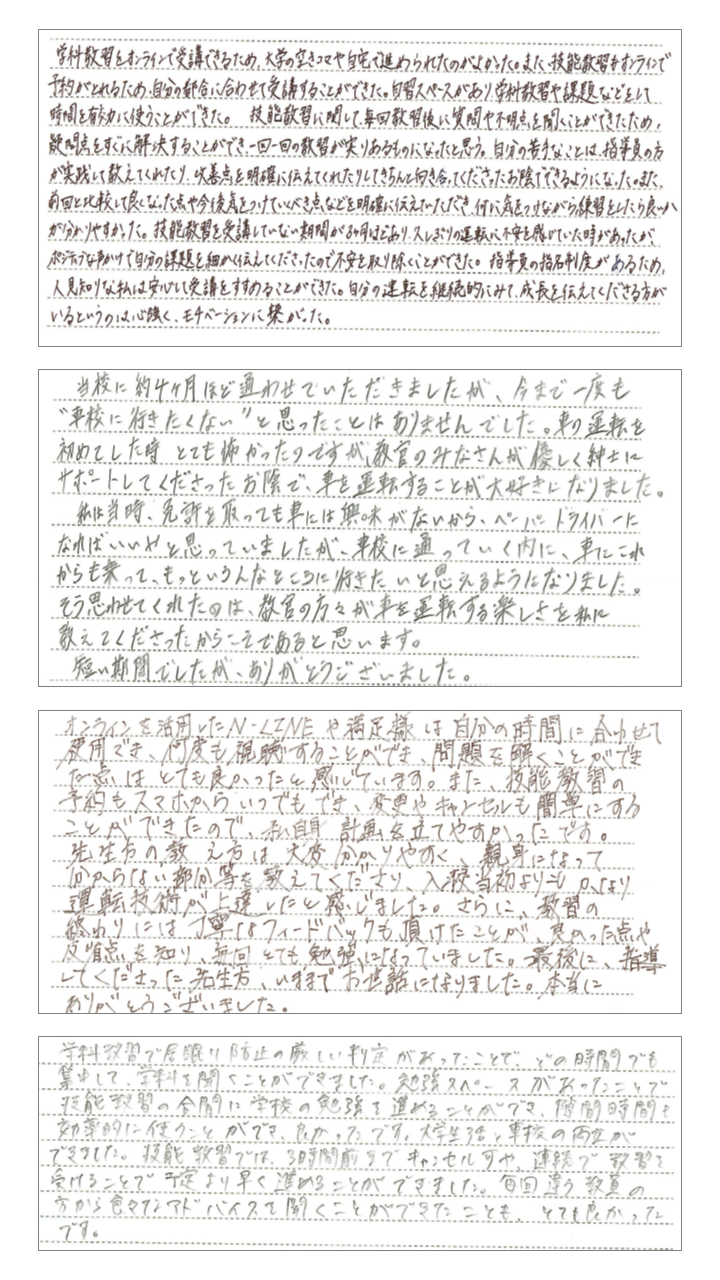 学科教習をオンラインで受講できるため、大学の空きコマや自宅で進められたのがよかった。また、技能教習もオンラインで
予約がとれるため、自分の都合に合わせて受講することができた。自習スペースがあり学科教習や課題などをして
時間を有効に使うことができた。 技能教習に関して、毎回教習後に質問や不明点を聞くことができたため、
疑問点をすぐに解決することができ、一回一回の教習が実りあるものになったと思う。自分の苦手なことは、指導員の方
が実践して教えてくれたり、改善点を明確に伝えてくれたりしてきちんと向き合ってくださったお陰でできるようになった。また、
前回と比較して良くなった点や今後気をつけていくべき点などを明確に伝えていただき、何に気をつけながら練習をしたら良いか
が分かりやすかった。技能教習を受講していない期間が3ヶ月ほどあり、久しぶりの運転に不安を感じていた時があったが、
ポジティブな声かけで自分の課題を細かく伝えてくださったので不安を取り除くことができた。 指導員の指名制度があるため、
人見知りな私は安心して受講をすすめることができた。自分の運転を継続的にみて、成長を伝えてくださる方が
いるというのは心強く、モチベーションに繋がった。
当校に約4ヶ月ほど通わせていただきましたが、今まで一度も
"車校に行きたくない"と思ったことはありませんでした。車の運転を
初めてした時 とても怖かったのですが、教官のみなさんが優しく紳士に
サポートしてくださったお陰で、車を運転することが大好きになりました。
私は当時、免許を取っても車には興味がないから、ペーパードライバーに
なればいいやと思っていましたが、車校に通っていく内に、車にこれ
からも乗って、もっといろんなところに行きたいと思えるようになりました。
そう思わせてくれたのは、教官の方々が車を運転する楽しさを私に
教えてくださったからこそであると思います。
短い期間でしたが、ありがとうございました。
オンラインを活用したN-LINEや満足様は自分の時間に合わせて
使用でき、何度も視聴することができ、問題を解くことができ
た点はとても良かったと感じています。また、技能教習の
予約もスマホからいつでもでき、変更やキャンセルも簡単にする
ことができたので、私自身 計画を立てやすかったです。
先生方の教え方は大変分かりやすく、親身になって
分からない部分等を教えてくださり、入校当初よりもかなり
運転技術が上達したと感じました。さらに、教習の
終わりには丁寧なフィードバックも頂けたことが、良かった点や
反省点を知り、毎回とても勉強になっていました。最後に、指導
してくださった先生方、いままでお世話になりました。本当に
ありがとうございました。
学科教習で居眠り防止の厳しい判定があったことで、どの時間でも
集中して、学科を聞くことができました。勉強スペースがあったことで
技能教習の合間に学校の勉強を進めることができ、隙間時間を
効率的に使うことができ、良かったです。大学生活と車校の両立が
できました。技能教習では、3時間前までキャンセルすや、連続で教習を
受けることで予定より早く進めることができました。毎回違う教員の
方から色々なアドバイスを聞くことができたことも、とても良かった
です。